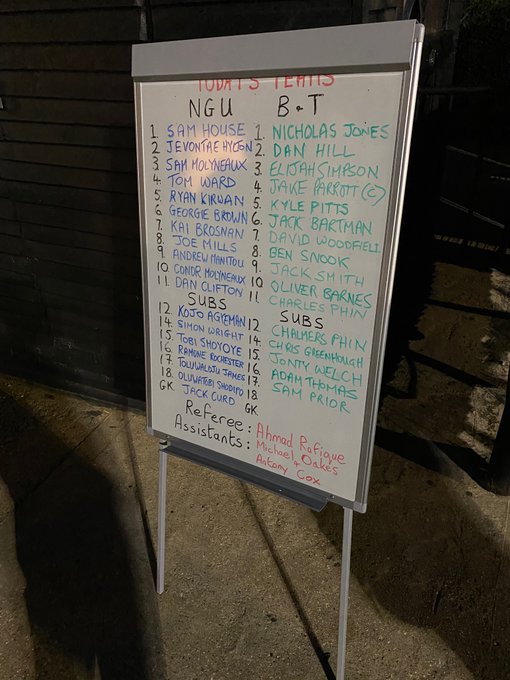 TODAY'S TEAMS
NGU B.T
1. SAM HOUSE 1. NICHOLAS JONES
2. JEVONTAE HYLTON 2. DAN HILL
3. SAM MOLYNEAUX 3. ELIJAH SIMPSON
4. TOM WARD 4. JAKE PARROTT (C)
5. RYAN KIRWAN 5. KYLE PITTS
6. GEORGIE BROWN 6. JACK BARTMAN
7. KAI BROSNAN 7. DAVID WOODFIELD
8. JOE MILLS 8. BEN SNOOK
9. ANDREW MANITOU 9. JACK SMITH
10 CONOR MOLYNEAUX 10 OLIVER BARNES
11. DAN CLIFTON 11. CHARLES PHIN
SUBS SUBS
12. KOJO AGYEMAN 12 CHALMERS PHIN
14. SIMON WRIGHT 14. CHRIS GREENHOUGH
15. TOBI SHOYOYE 15. JONTY WELCH
16. RAMONE ROCHESTER 16. ADAM THOMAS
17. TOLUWALOJU JAMES 17. SAM PRIOR
18. OLUWATOBI SHODIPO 18
GK JACK CURD GK
Referee: Ahmad Rafique
Assistants: Michael Oakes
+
Antony Cox